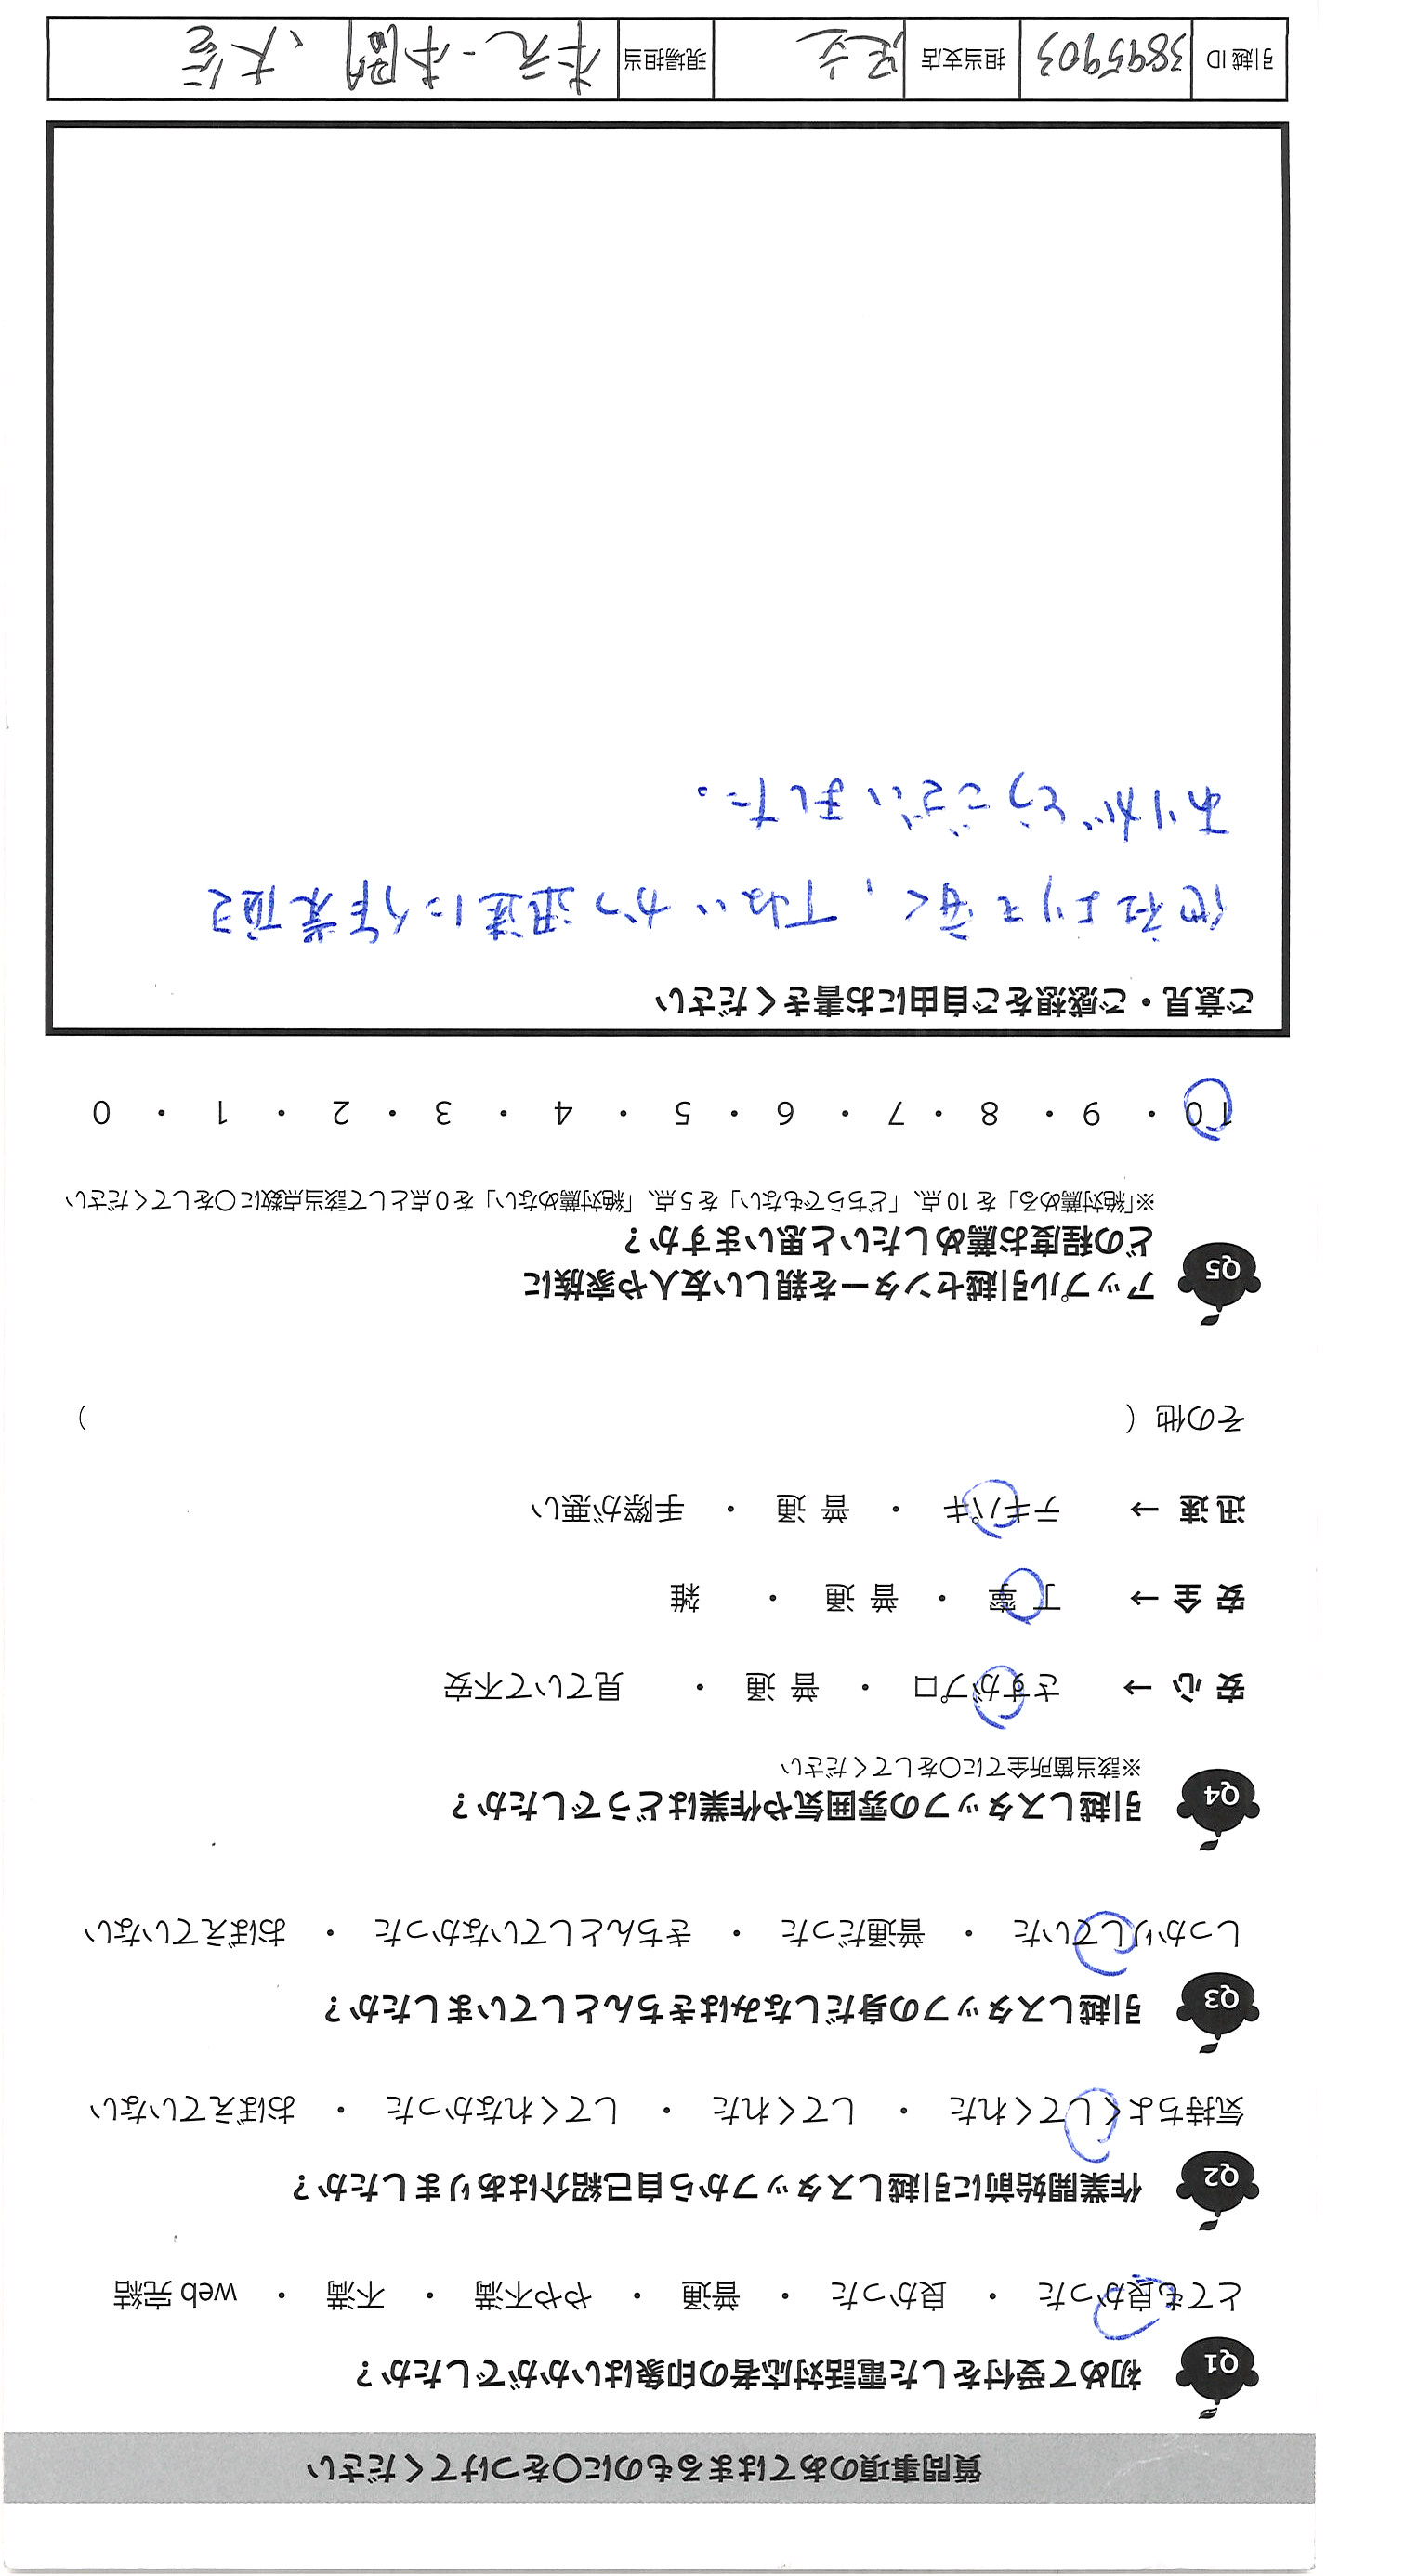 質問事項のあてはまるものに〇をつけてください
Q1 初めて受付をした電話対応者の印象はいかがでしたか？
とても良かった ・ 良かった ・ 普通 ・ やや不満 ・ 不満 ・ web 完結
Q2 作業開始前に引越しスタッフから自己紹介はありましたか？
気持ちよくしてくれた ・ してくれた ・ してくれなかった ・ おぼえていない
Q3 引越しスタッフの身だしなみはきちんとしていましたか？
しっかりしていた ・ 普通だった ・ きちんとしていなかった ・ おぼえていない
Q4 引越しスタッフの雰囲気や作業はどうでしたか？
※該当箇所全てに〇をしてください
安 心 → さすがプロ ・ 普 通 ・ 見ていて不安
安 全 → 丁 寧 ・ 普 通 ・ 雑
迅 速 → テキパキ ・ 普 通 ・ 手際が悪い
その他（ ）
Q5 アップル引越センターを親しい友人や家族に
どの程度お薦めしたいと思いますか？
※「絶対薦める」を 10 点、「どちらでもない」を 5 点、「絶対薦めない」を 0 点として該当点数に〇をしてください
10 ・ 9 ・ 8 ・ 7 ・ 6 ・ 5 ・ 4 ・ 3 ・ 2 ・ 1 ・ 0
ご意見・ご感想をご自由にお書きください
他社よりも安く、丁ねいかつ迅速に作業頂き
ありがとうございました。
引越 ID 3895903 担当支店 足立 現場担当 本間、大窪